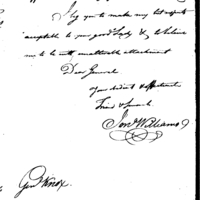 I beg you to make my best respects
acceptable to your good Lady & to believe
me to be with unalterable attachment
Dear General
Your obedient & affectionate
Friend & Servant
Jon Williams
Genl Knox.